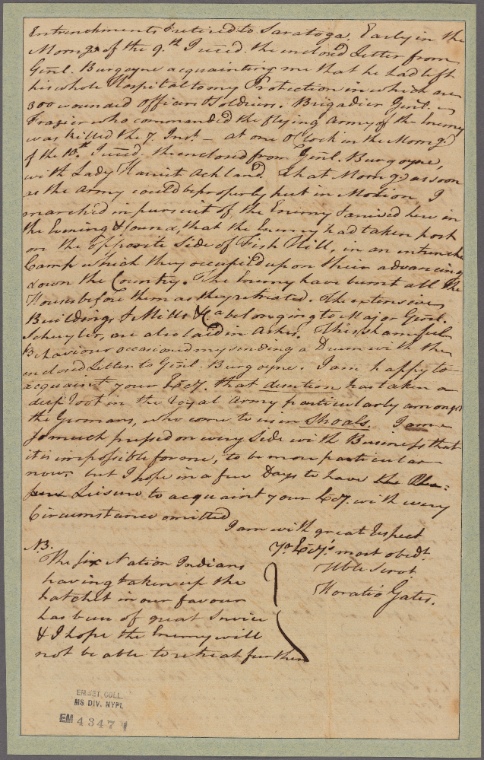 Entrenchments & retired to Saratoga. Early in the
Morng. of the 9th I recd. the inclosed Letter from
Genl. Burgoyne acquainting me that he had left
his whole Hospital to my Protection in which are
300 wounded Officers & Soldiers. Brigadier Genl.
Frazier who commanded the flying Army of the Enemy
was killed the 7 Inst. — at one o'Clock in the Morng.
of the 10th. I recd. the enclosed from Genl. Burgoyne,
with Lady Harriet Ackland. That Morng. as soon
as the Army could be properly put in Motion, I
marched in pursuit of the Enemy I arrived here in
the Evening & found, that the Enemy had taken post
on the Opposite Side of Fish Kill, in an entrench
Camp which they occupied upon their advancing
down the Country. The Enemy have burnt all the
Houses before them as they retreated. The extensive
Buildings & Mills &Ca. belonging to Major Genl.
Schuyler, are also laid in Ashes. This shameful
Behaviour occasioned my sending a Drum with the
inclosed Letter to Genl. Burgoyne. I am happy to
acquaint your Excy. that desertion has taken a
deep Root in the Royal Army particularly amongst
the Germans, who come to us in Shoals. I am
so much pressed on every Side with Business that
it is impossible for me, to be more particular
now; but I hope in a few Days to have
Leisure to acquaint your Excy. with every
Circumstance omitted
I am with great Respect
Yr. Excy's most obedt.
Hble Servt
Horatio Gates.
NB.
The six Nation Indians
having taken up the
hatchet in our favour
has been of great Service
& I hope the Enemy will
not be able to retreat further
EMMET COLL.
MS DIV. NYPL
EM 4347